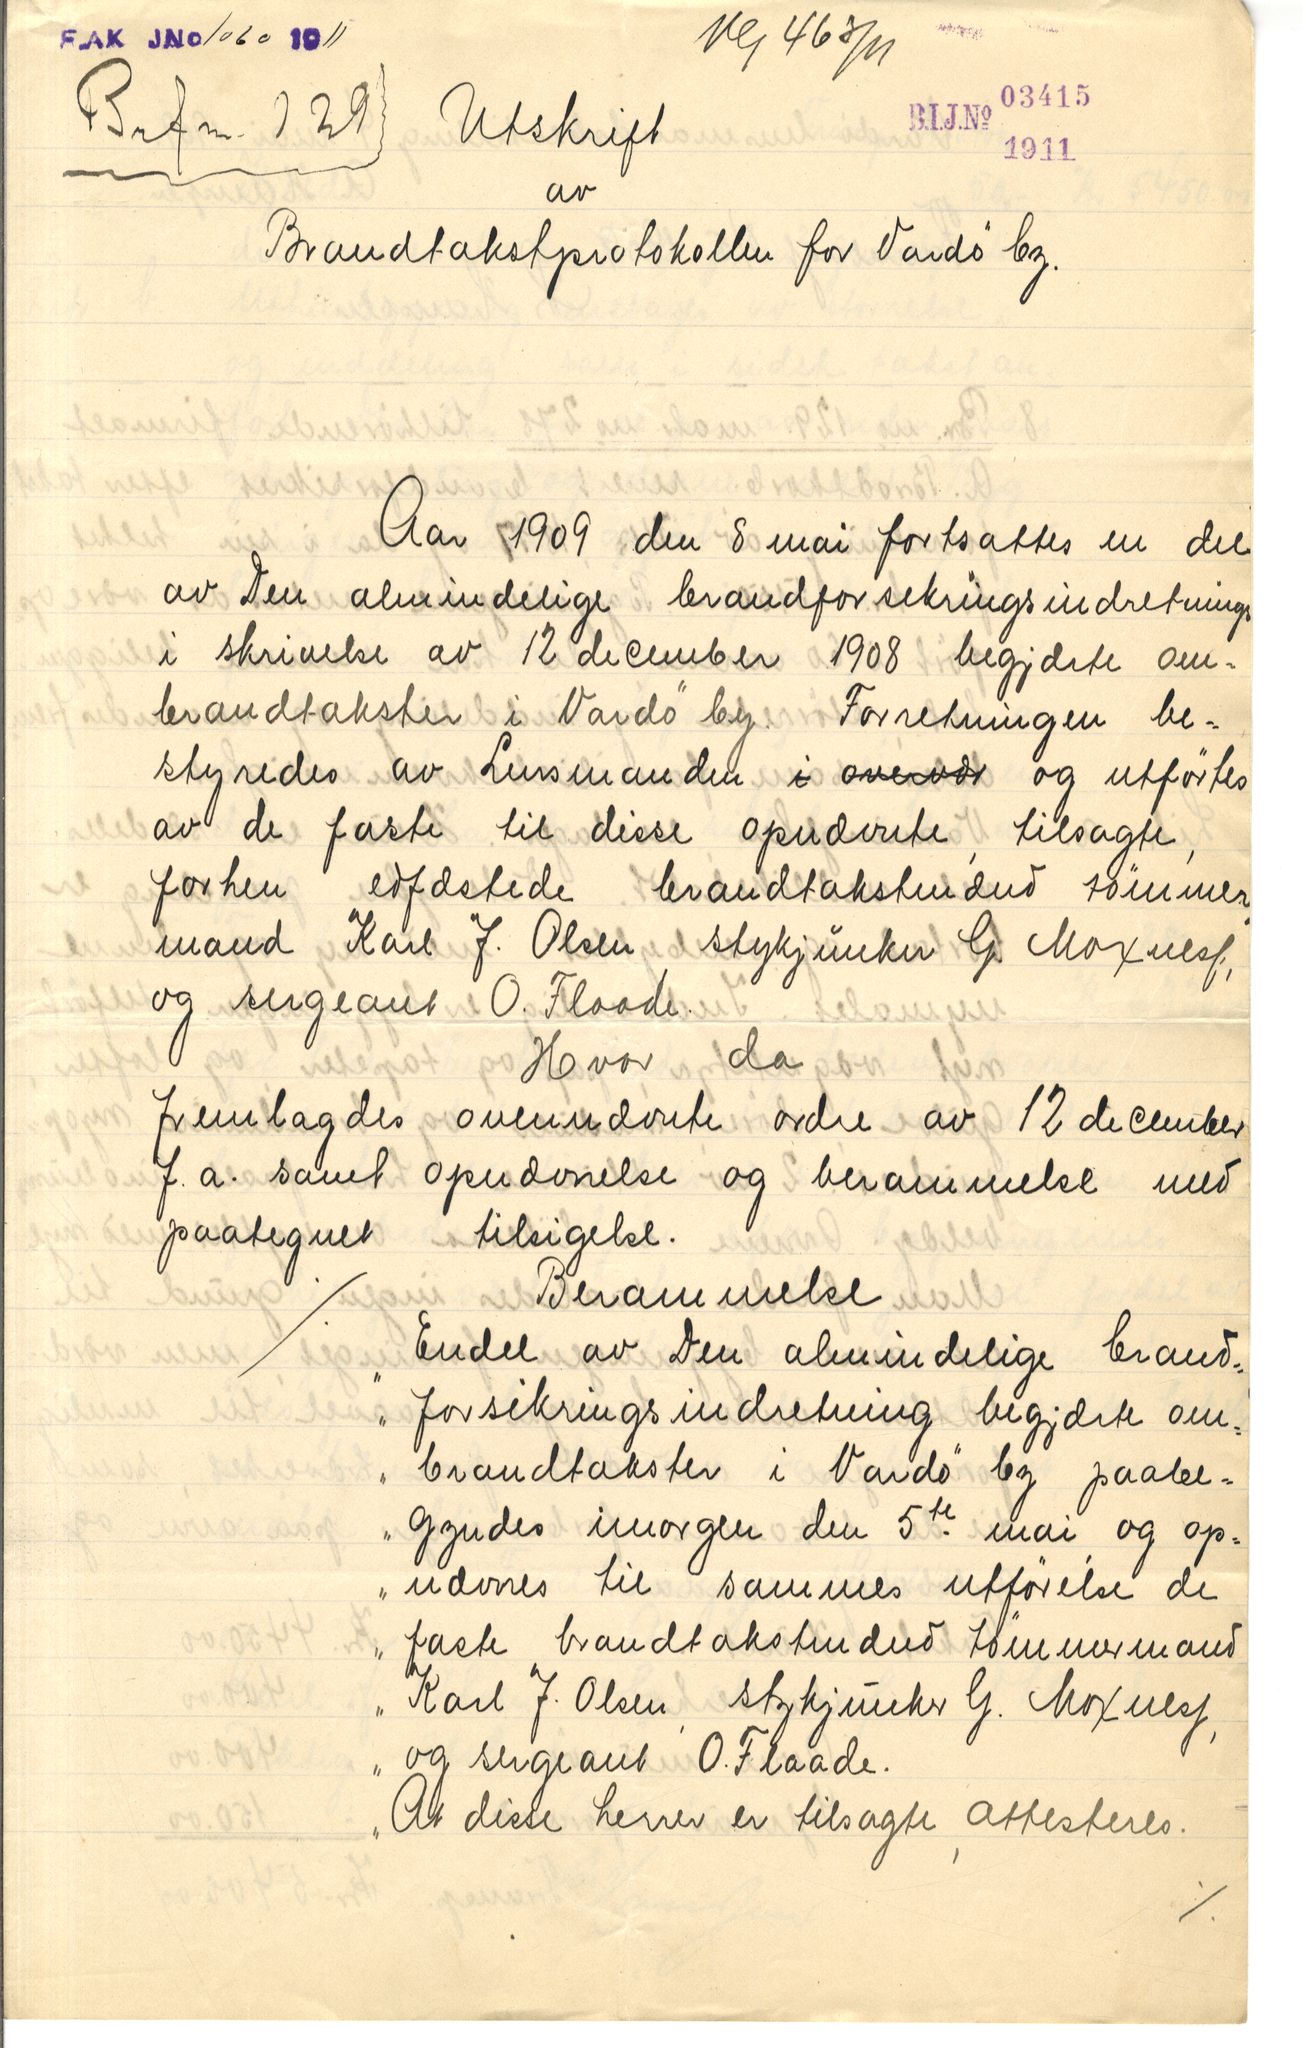 F.AK JNo 1060 1911
Vg 463/11
Brfm. 129
B.I.J.No 03415
1911
Utskrift
av
Brandtakstprotokollen for Vardö by.
Aar 1909 den 8 mai fortsattes en del
av Den almindelige brandforsekringsindretnings
i skrivelse av 12 december 1908 begjærte om-
brandtakster i Vardö by. Forretningen be-
styredes av Lensmanden i overvær og utförtes
av de faste til disse opnævnte, tilsagte,
forhen edfæstede brandtakstmænd tömmer
mand Karl J. Olsen, stykjunker G. Moxness,
og sergeant O. Flaade.
Hvor da
fremlagdes ovennævnte ordre av 12 december
f. a. samt opnævnelse og berammelse med
paategnet tilsigelse.
Berammelse
./.
„ Endel av Den almindelige brand-
„ forsikringsindretning begjærte om-
„ brandtakster i Vardö by paabe-
„ gyndes imorgen den 5te mai og op-
„ nævnes til sammes utförelse de
„ faste brandtakstmænd tömmermand
„ Karl J. Olsen, stykjunker G. Moxness,
„ og sergeant O. Flaade.
„ At disse herrer er tilsagte, attesteres.
./.